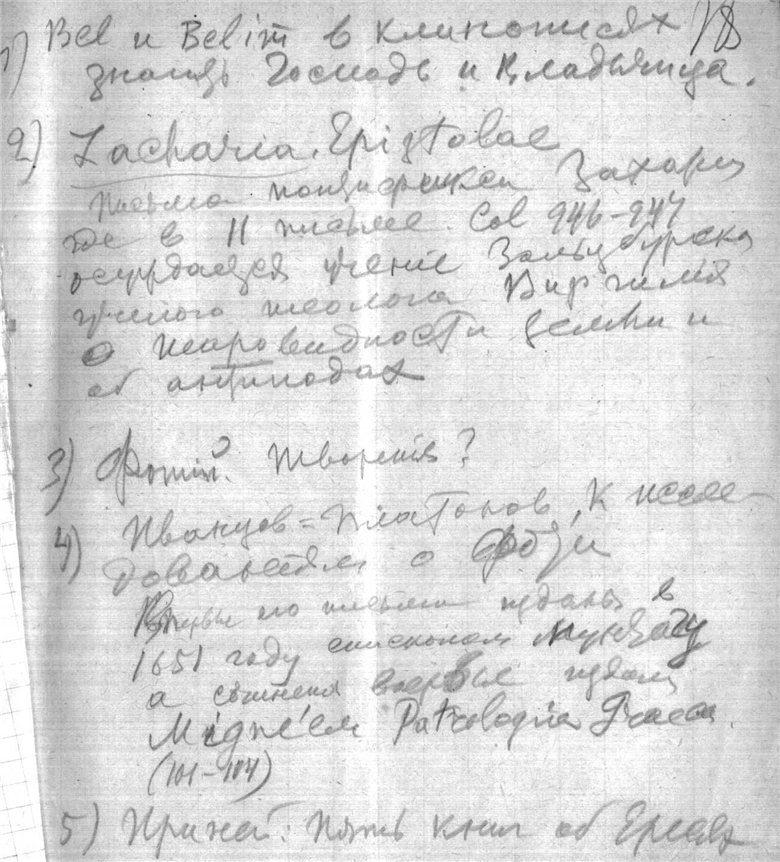 1) Bel и Belim в клинописях 18
значит Господь и Владычица.
2) Zacharia. Epistolae
письма Захария
где в II письме. Col 946-947
осуждается учение Зальцбургско
ученого теолога Виргилия
о шаровидности земли и
об антиподах
3) Фотий. Творения?
4) Иванцов=Платонов, К иссле-
дованиям о Фотии
Впервые письма изданы в
1651 году епископом
а сочинения впервые изданы
Migne'ем Patrologia Graeca.
(101-104)
5) Ириней. Пять книг об Ересях